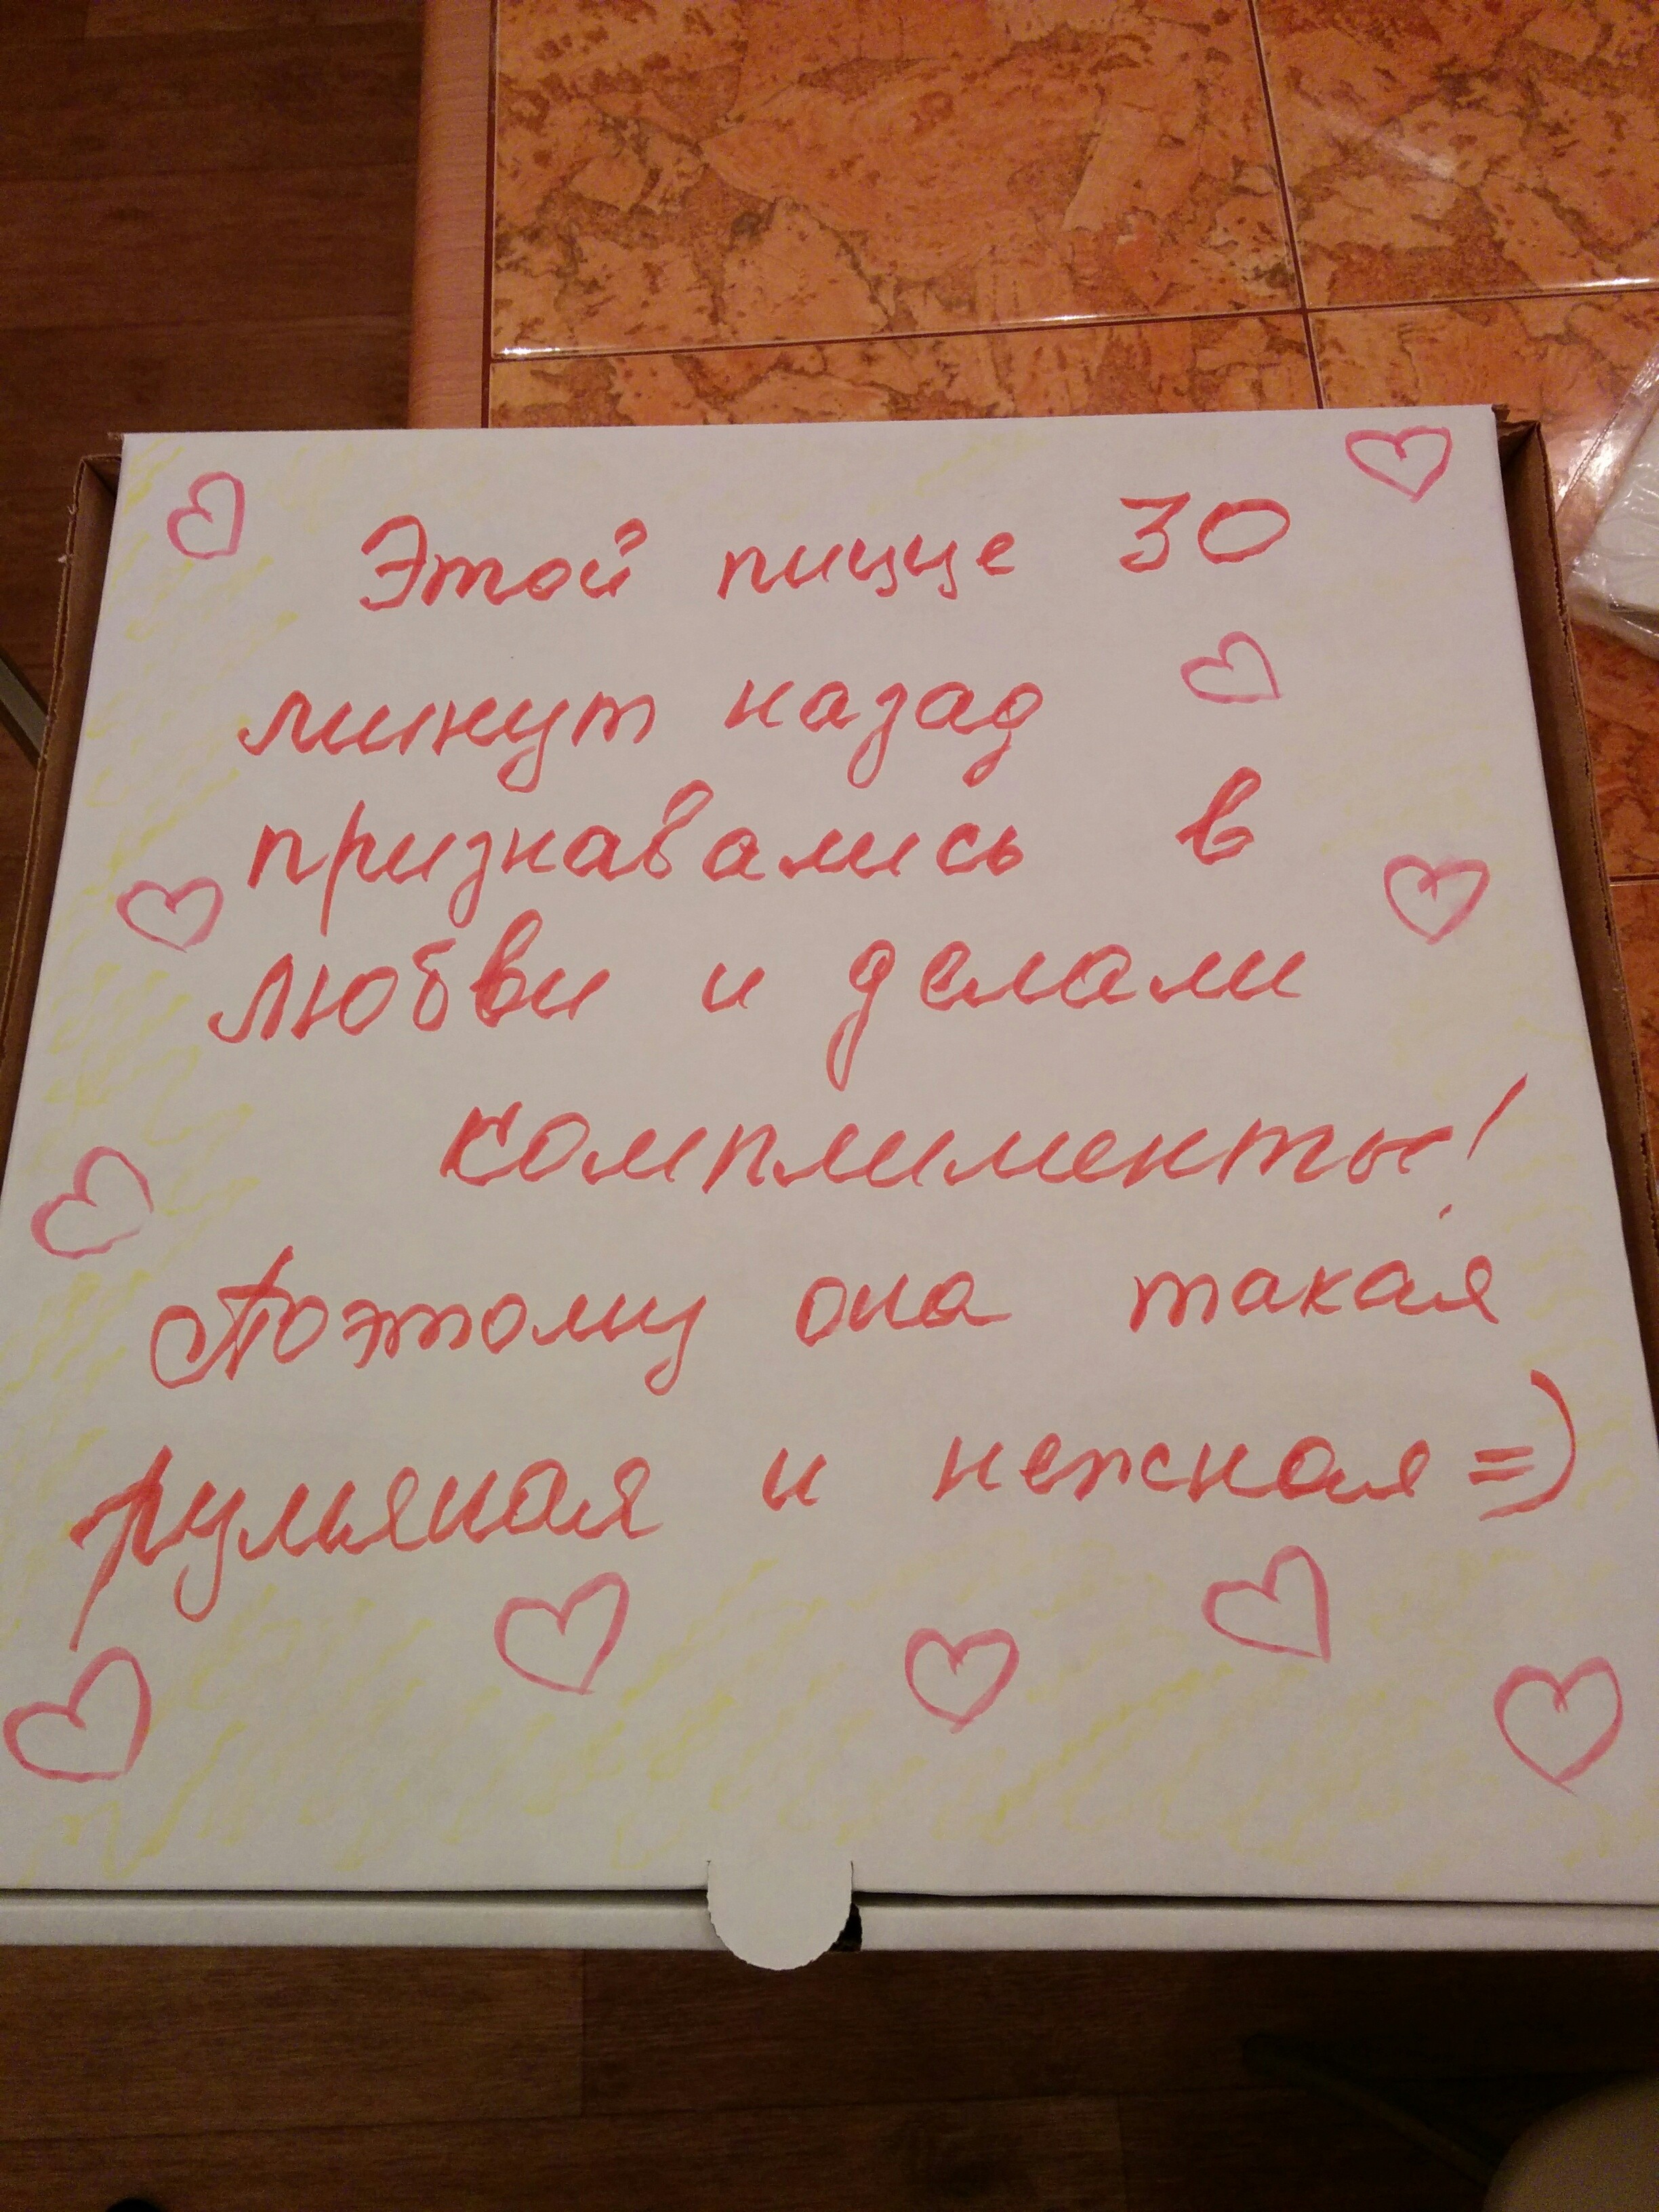 Этой пицце 30
минут назад
признавались в
любви и делами
комплименты!
Поэтому она такая
румяная и нежная =)